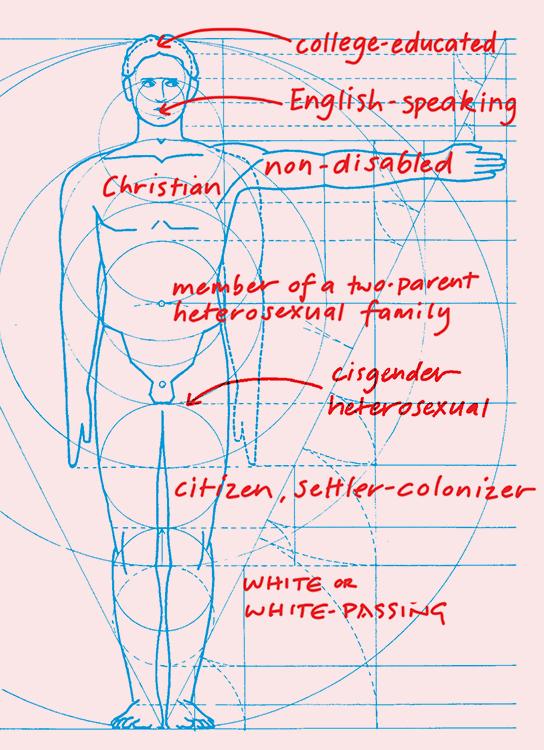 college-educated
English-speaking
non-disabled
Christian
member of a two-parent
heterosexual family
cisgender
heterosexual
citizen, settler-colonizer
WHITE OR
WHITE-PASSING